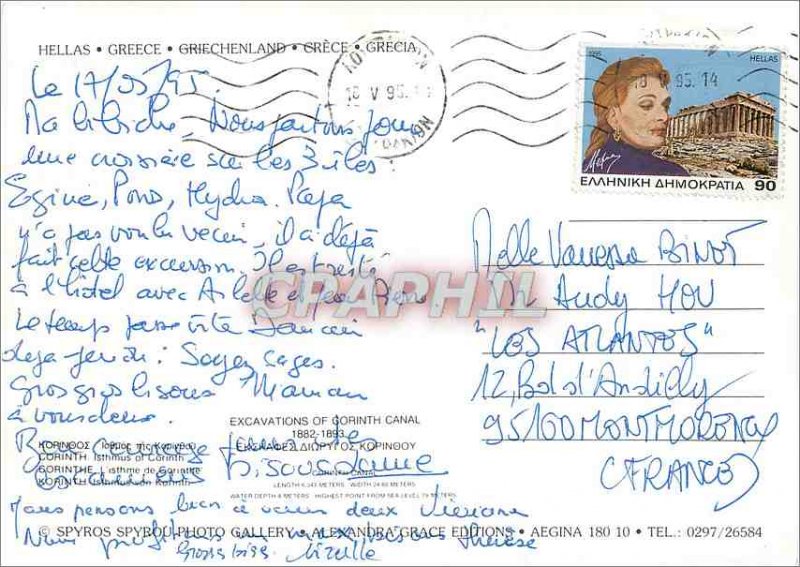 HELLAS • GREECE • GRIECHENLAND • GRÈCE • GRECIA
Le 17/05/95.
Ma bibiche, Nous partons pour
une croisière sur les 3 îles :
Egine, Poros, Hydra. Papa
n'a pas voulu venir, il a déjà
fait cette excursion. Il est resté
à l'hôtel avec Arlette et Jean Pierre
Le temps passe vite Demain
déjà jeudi : Soyez sages.
Gros gros bisous Maman
à vous deux.
18 V 95. 14
18 V 95. 14
1995
HELLAS
ΕΛΛΗΝΙΚΗ ΔΗΜΟΚΡΑΤΙΑ 90
Melle Vanessa BINOT
Mr Andy HOU
"LES ATLANTES"
12, Bd d'Andilly
95160 MONTMORENCY
(FRANCE)
CPAPHIL
EXCAVATIONS OF CORINTH CANAL
1882-1893
ΕΚΣΚΑΦΕΣ ΔΙΩΡΥΓΟΣ ΚΟΡΙΝΘΟΥ
ΚΟΡΙΝΘΟΣ Ισθμος της Κορίνθου
CORINTH Isthmus of Corinth
CORINTHE L'isthme de Corinthe
KORINTH Isthmus von Korinth
CORINTH CANAL
LENGTH 6.343 METERS WIDTH 24.60 METERS
WATER DEPTH 8 METERS HIGHEST POINT FROM SEA LEVEL 79 METERS
Bisous
Nous pensons bien à vous deux
© SPYROS SPYROU PHOTO GALLERY • ALEXANDRA GRACE EDITIONS • AEGINA 180 10 • TEL.: 0297/26584
bisous Thérèse
Gross biss.